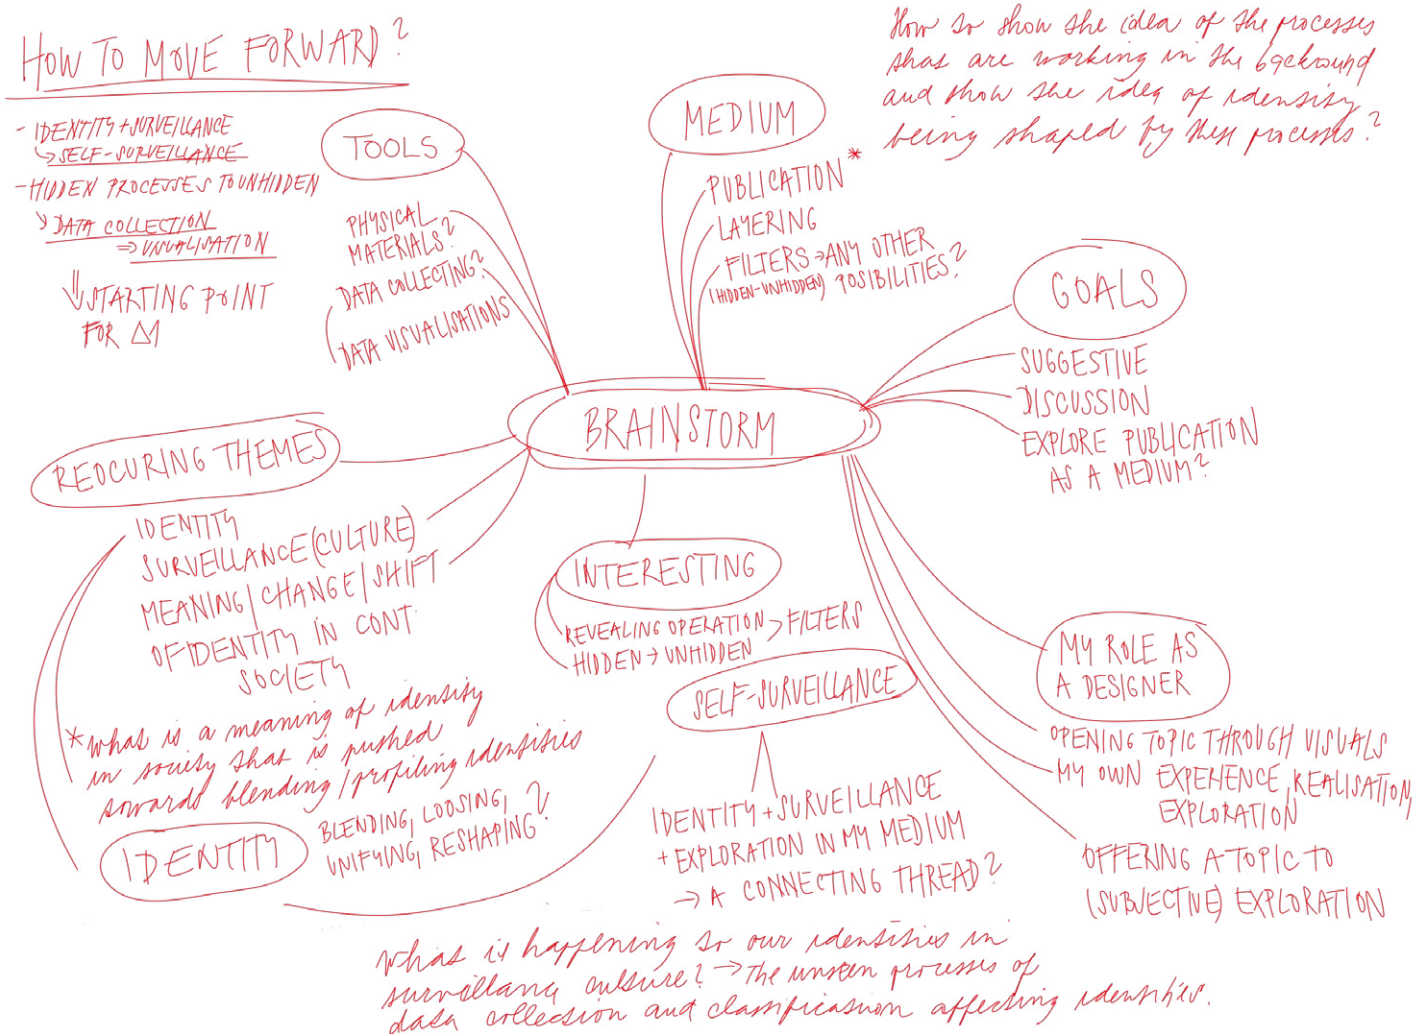 HOW TO MOVE FORWARD?
- IDENTITY + SURVEILLANCE
↳ SELF-SURVEILLANCE
- HIDDEN PROCESSES TO UNHIDDEN
↘ DATA COLLECTION
⇒ VISUALISATION
⇓ STARTING POINT
FOR Δ1
How to show the idea of the processes
that are working in the backround
and show the idea of identity
being shaped by these processes?
TOOLS
PHYSICAL
MATERIALS?
DATA COLLECTING?
DATA VISUALISATIONS
MEDIUM
PUBLICATION *
LAYERING
FILTERS → ANY OTHER
(HIDDEN-UNHIDDEN) POSIBILITIES?
GOALS
SUGGESTIVE
DISCUSSION
EXPLORE PUBLICATION
AS A MEDIUM?
BRAINSTORM
REOCURING THEMES
IDENTITY
SURVEILLANCE (CULTURE)
MEANING / CHANGE / SHIFT
OF IDENTITY IN CONT.
SOCIETY
* what is a meaning of identity
in society that is pushed
towards blending / profiling identities
IDENTITY
BLENDING, LOOSING,
UNIFYING, RESHAPING?
INTERESTING
REVEALING OPERATION > FILTERS
HIDDEN → UNHIDDEN
SELF-SURVEILLANCE
IDENTITY + SURVEILLANCE
+ EXPLORATION IN MY MEDIUM
→ A CONNECTING THREAD?
MY ROLE AS
A DESIGNER
OPENING TOPIC THROUGH VISUALS
MY OWN EXPERIENCE, REALISATION,
EXPLORATION
OFFERING A TOPIC TO
(SUBJECTIVE) EXPLORATION
what is happening to our identities in
surveillance culture? → The unseen processes of
data collection and classification affecting identities.